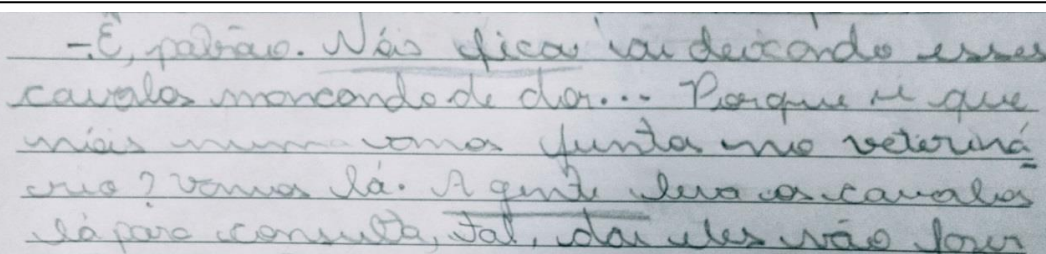 - É, patrão. Nóis fica ai deixando esses
cavalos mancando de dor... Porque é que
nóis num vamos juntos no veteriná
rio? vamos lá. A gente leva os cavalos
lá para consulta, tal, daí eles vão fazer